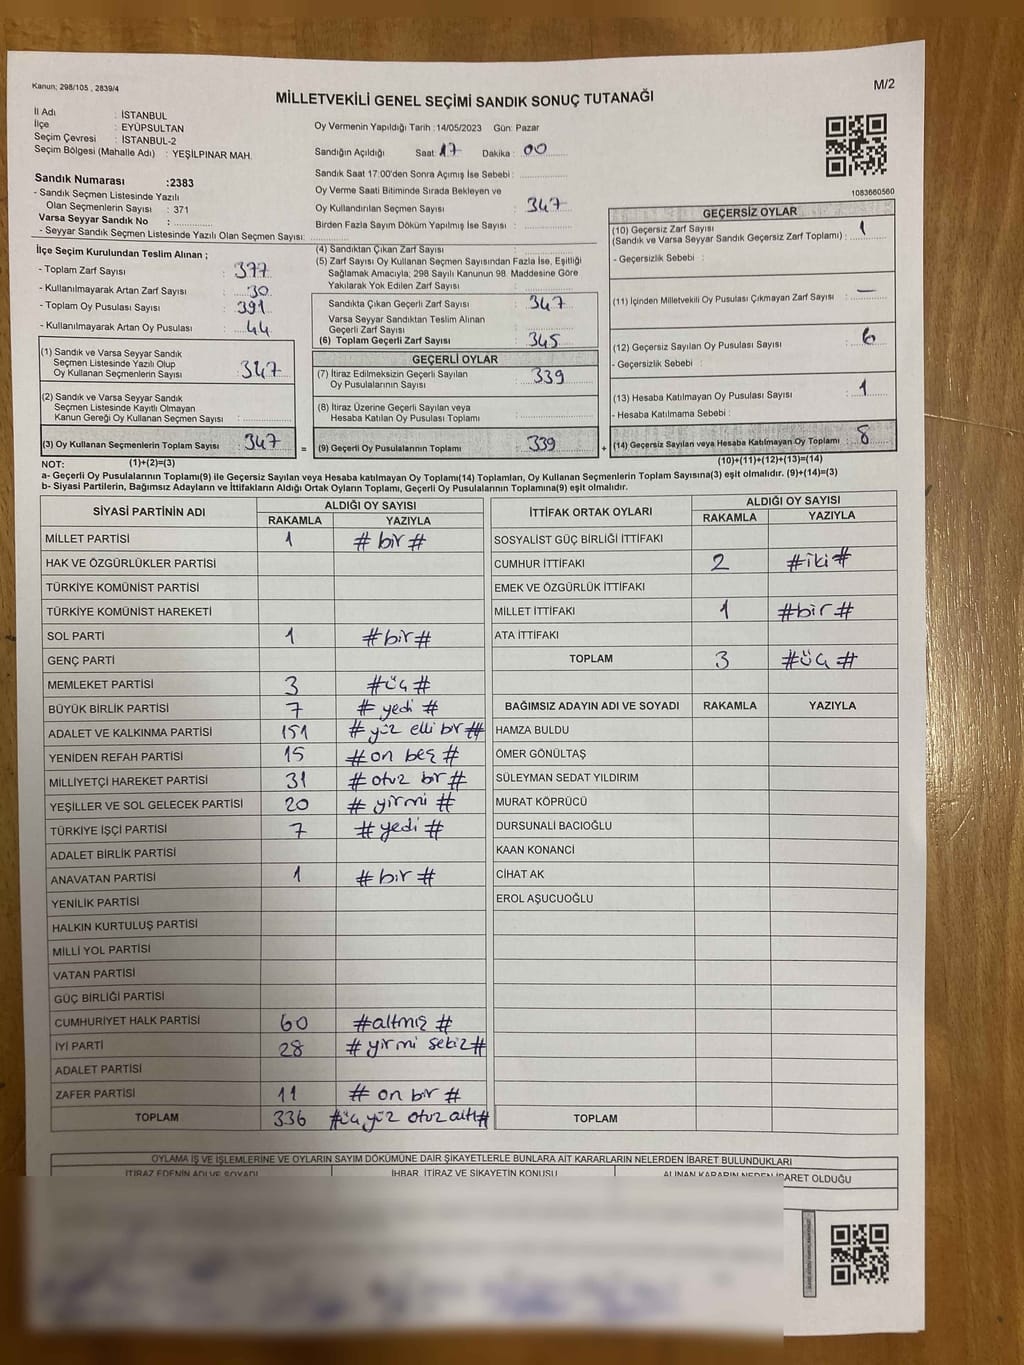 Kanun; 298/105 , 2839/4
M/2
MİLLETVEKİLİ GENEL SEÇİMİ SANDIK SONUÇ TUTANAĞI
İl Adı : İSTANBUL
İlçe : EYÜPSULTAN
Seçim Çevresi : İSTANBUL-2
Seçim Bölgesi (Mahalle Adı) : YEŞİLPINAR MAH.
Sandık Numarası :2383
- Sandık Seçmen Listesinde Yazılı
Olan Seçmenlerin Sayısı : 371
Varsa Seyyar Sandık No :
- Seyyar Sandık Seçmen Listesinde Yazılı Olan Seçmen Sayısı:
Oy Vermenin Yapıldığı Tarih :14/05/2023 Gün: Pazar
Sandığın Açıldığı Saat: 17 Dakika : 00
Sandık Saat 17:00'den Sonra Açımış İse Sebebi :
Oy Verme Saati Bitiminde Sırada Bekleyen ve
Oy Kullandırılan Seçmen Sayısı : 347
Birden Fazla Sayım Döküm Yapılmış İse Sayısı :
1083660560
İlçe Seçim Kurulundan Teslim Alınan ;
- Toplam Zarf Sayısı : 377
- Kullanılmayarak Artan Zarf Sayısı : 30
- Toplam Oy Pusulası Sayısı : 391
- Kullanılmayarak Artan Oy Pusulası : 44
(1) Sandık ve Varsa Seyyar Sandık
Seçmen Listesinde Yazılı Olup
Oy Kullanan Seçmenlerin Sayısı : 347
(2) Sandık ve Varsa Seyyar Sandık
Seçmen Listesinde Kayıtlı Olmayan
Kanun Gereği Oy Kullanan Seçmen Sayısı :
(3) Oy Kullanan Seçmenlerin Toplam Sayısı : 347
(1)+(2)=(3)
(4) Sandıktan Çıkan Zarf Sayısı
(5) Zarf Sayısı Oy Kullanan Seçmen Sayısından Fazla İse, Eşitliği
Sağlamak Amacıyla; 298 Sayılı Kanunun 98. Maddesine Göre
Yakılarak Yok Edilen Zarf Sayısı :
Sandıkta Çıkan Geçerli Zarf Sayısı : 347
Varsa Seyyar Sandıktan Teslim Alınan
Geçerli Zarf Sayısı
(6) Toplam Geçerli Zarf Sayısı : 345
GEÇERLİ OYLAR
(7) İtiraz Edilmeksizin Geçerli Sayılan
Oy Pusulalarının Sayısı : 339
(8) İtiraz Üzerine Geçerli Sayılan veya
Hesaba Katılan Oy Pusulası Toplamı :
= (9) Geçerli Oy Pusulalarının Toplamı : 339 +
GEÇERSİZ OYLAR
(10) Geçersiz Zarf Sayısı
(Sandık ve Varsa Seyyar Sandık Geçersiz Zarf Toplamı) : 1
- Geçersizlik Sebebi :
(11) İçinden Milletvekili Oy Pusulası Çıkmayan Zarf Sayısı : —
(12) Geçersiz Sayılan Oy Pusulası Sayısı : 6
- Geçersizlik Sebebi :
(13) Hesaba Katılmayan Oy Pusulası Sayısı : 1
- Hesaba Katılmama Sebebi :
(14) Geçersiz Sayılan veya Hesaba Katılmayan Oy Toplamı : 8
(10)+(11)+(12)+(13)=(14)
NOT:
a- Geçerli Oy Pusulalarının Toplamı(9) ile Geçersiz Sayılan veya Hesaba katılmayan Oy Toplamı(14) Toplamları, Oy Kullanan Seçmenlerin Toplam Sayısına(3) eşit olmalıdır. (9)+(14)=(3)
b- Siyasi Partilerin, Bağımsız Adayların ve İttifakların Aldığı Ortak Oyların Toplamı, Geçerli Oy Pusulalarının Toplamına(9) eşit olmalıdır.
SİYASİ PARTİNİN ADI ALDIĞI OY SAYISI
RAKAMLA YAZIYLA
MİLLET PARTİSİ 1 # bir #
HAK VE ÖZGÜRLÜKLER PARTİSİ
TÜRKİYE KOMÜNİST PARTİSİ
TÜRKİYE KOMÜNİST HAREKETİ
SOL PARTİ 1 # bir #
GENÇ PARTİ
MEMLEKET PARTİSİ 3 # üç #
BÜYÜK BİRLİK PARTİSİ 7 # yedi #
ADALET VE KALKINMA PARTİSİ 151 # yüz elli bir #
YENİDEN REFAH PARTİSİ 15 # on beş #
MİLLİYETÇİ HAREKET PARTİSİ 31 # otuz bir #
YEŞİLLER VE SOL GELECEK PARTİSİ 20 # yirmi #
TÜRKİYE İŞÇİ PARTİSİ 7 # yedi #
ADALET BİRLİK PARTİSİ
ANAVATAN PARTİSİ 1 # bir #
YENİLİK PARTİSİ
HALKIN KURTULUŞ PARTİSİ
MİLLİ YOL PARTİSİ
VATAN PARTİSİ
GÜÇ BİRLİĞİ PARTİSİ
CUMHURİYET HALK PARTİSİ 60 # altmış #
İYİ PARTİ 28 # yirmi sekiz #
ADALET PARTİSİ
ZAFER PARTİSİ 11 # on bir #
TOPLAM 336 # üç yüz otuz altı #
İTTİFAK ORTAK OYLARI ALDIĞI OY SAYISI
RAKAMLA YAZIYLA
SOSYALİST GÜÇ BİRLİĞİ İTTİFAKI
CUMHUR İTTİFAKI 2 # iki #
EMEK VE ÖZGÜRLÜK İTTİFAKI
MİLLET İTTİFAKI 1 # bir #
ATA İTTİFAKI
TOPLAM 3 # üç #
BAĞIMSIZ ADAYIN ADI VE SOYADI RAKAMLA YAZIYLA
HAMZA BULDU
ÖMER GÖNÜLTAŞ
SÜLEYMAN SEDAT YILDIRIM
MURAT KÖPRÜCÜ
DURSUNALİ BACIOĞLU
KAAN KONANCİ
CİHAT AK
EROL AŞUCUOĞLU
TOPLAM
OYLAMA İŞ VE İŞLEMLERİNE VE OYLARIN SAYIM DÖKÜMÜNE DAİR ŞİKAYETLERLE BUNLARA AİT KARARLARIN NELERDEN İBARET BULUNDUKLARI
İTİRAZ EDENİN ADI VE SOYADI İHBAR, İTİRAZ VE ŞİKAYETİN KONUSU ALINAN KARARIN NEDEN İBARET OLDUĞU